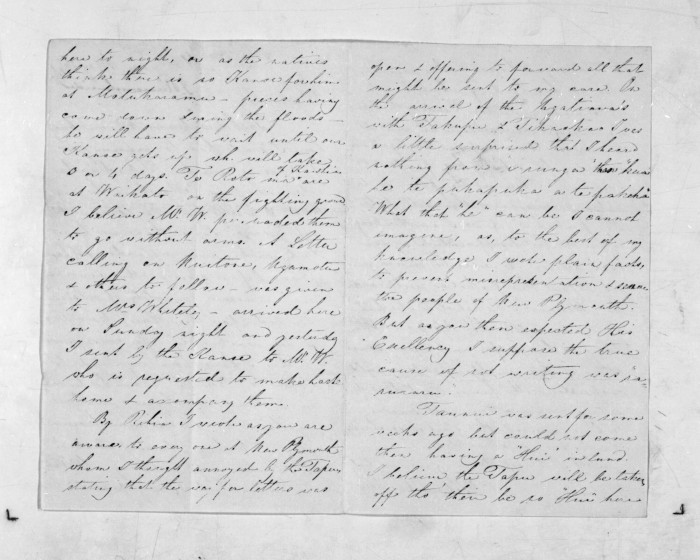 here to night, or as the natives
think there is no Kanoe for him
at Motukaramu – pieces having
come down during the floods –
he will have to wait until our
Kanoe gets up who will take
3 or 4 days. Te Roto & Karitini
are
at Waikato on the fighting ground
I believe Mr W. persuaded them
to go without arms. A Letter
calling on Ngamotu
& others to follow – was given
to Mrs Whiteley – arrived here
on Sunday night and yesterday
I sent by the Kanoe to Mr W.
who is requested to make back
home & accompany them.
By I wrote as you are
aware to every one at New Plymouth
whom I thought annoyed by the Tapu,
stating that the way for letters was
open & offering to forward all that
might be sent to my care. On
the arrival of the
with Takupu & I was
a little surprised that I heard
nothing from
he te pukapuka a te pakeha"
What that "he" can be I cannot
imagine, as, to the best of my
knowledge I wrote plain facts,
to prevent misrepresentation &
the people of New Plymouth.
But as you then expected His
Excellency I suppose the true
cause of not writing was
Tanawi was sent for some
weeks ago but could not come
then having a "Hui" inland.
I believe the Tapu will be taken
off tho' there be no "Hui" here